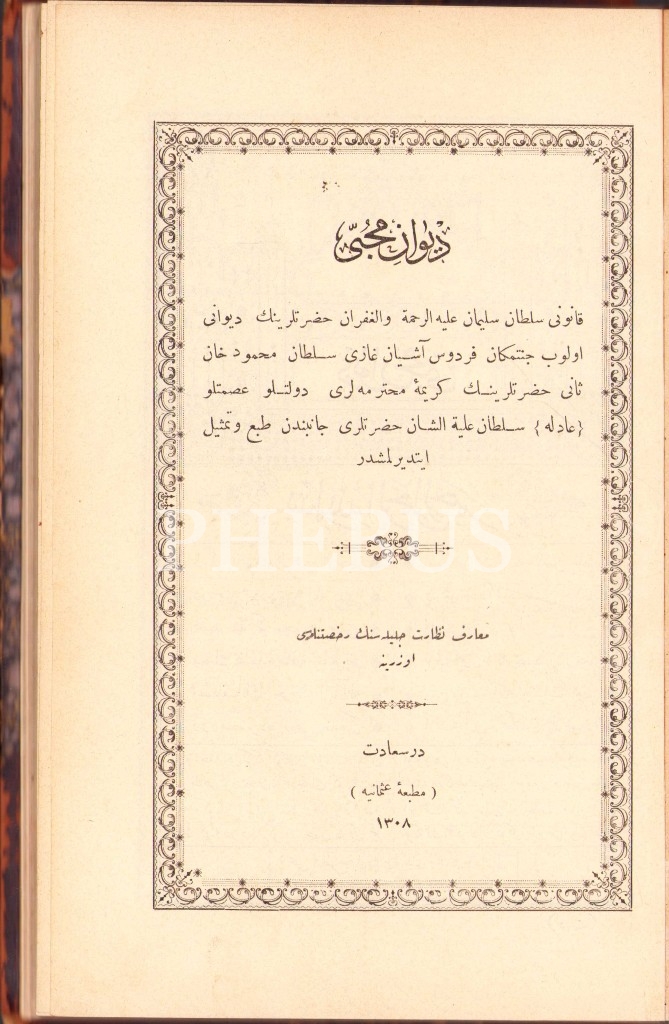 ديوان محبّى
قانونى سلطان سليمان عليه الرحمة والغفران حضرتلرينك ديوانى
اولوب جنتمكان فردوس آشيان غازى سـلطان محمود خان
ثانى حضرتلرينـك كريمۀ محترمه لرى دولتـلو عصمتلو
{عادله} سـلطان علية الشـان حضرتلرى جانبندن طبع وتمثيل
ايتديرلمشدر
PHEBUS
معارف نظارت جليله سنك رخصتنامه سى
اوزرينه
درسعادت
( مطبعۀ عثمانيه )
١٣٠٨